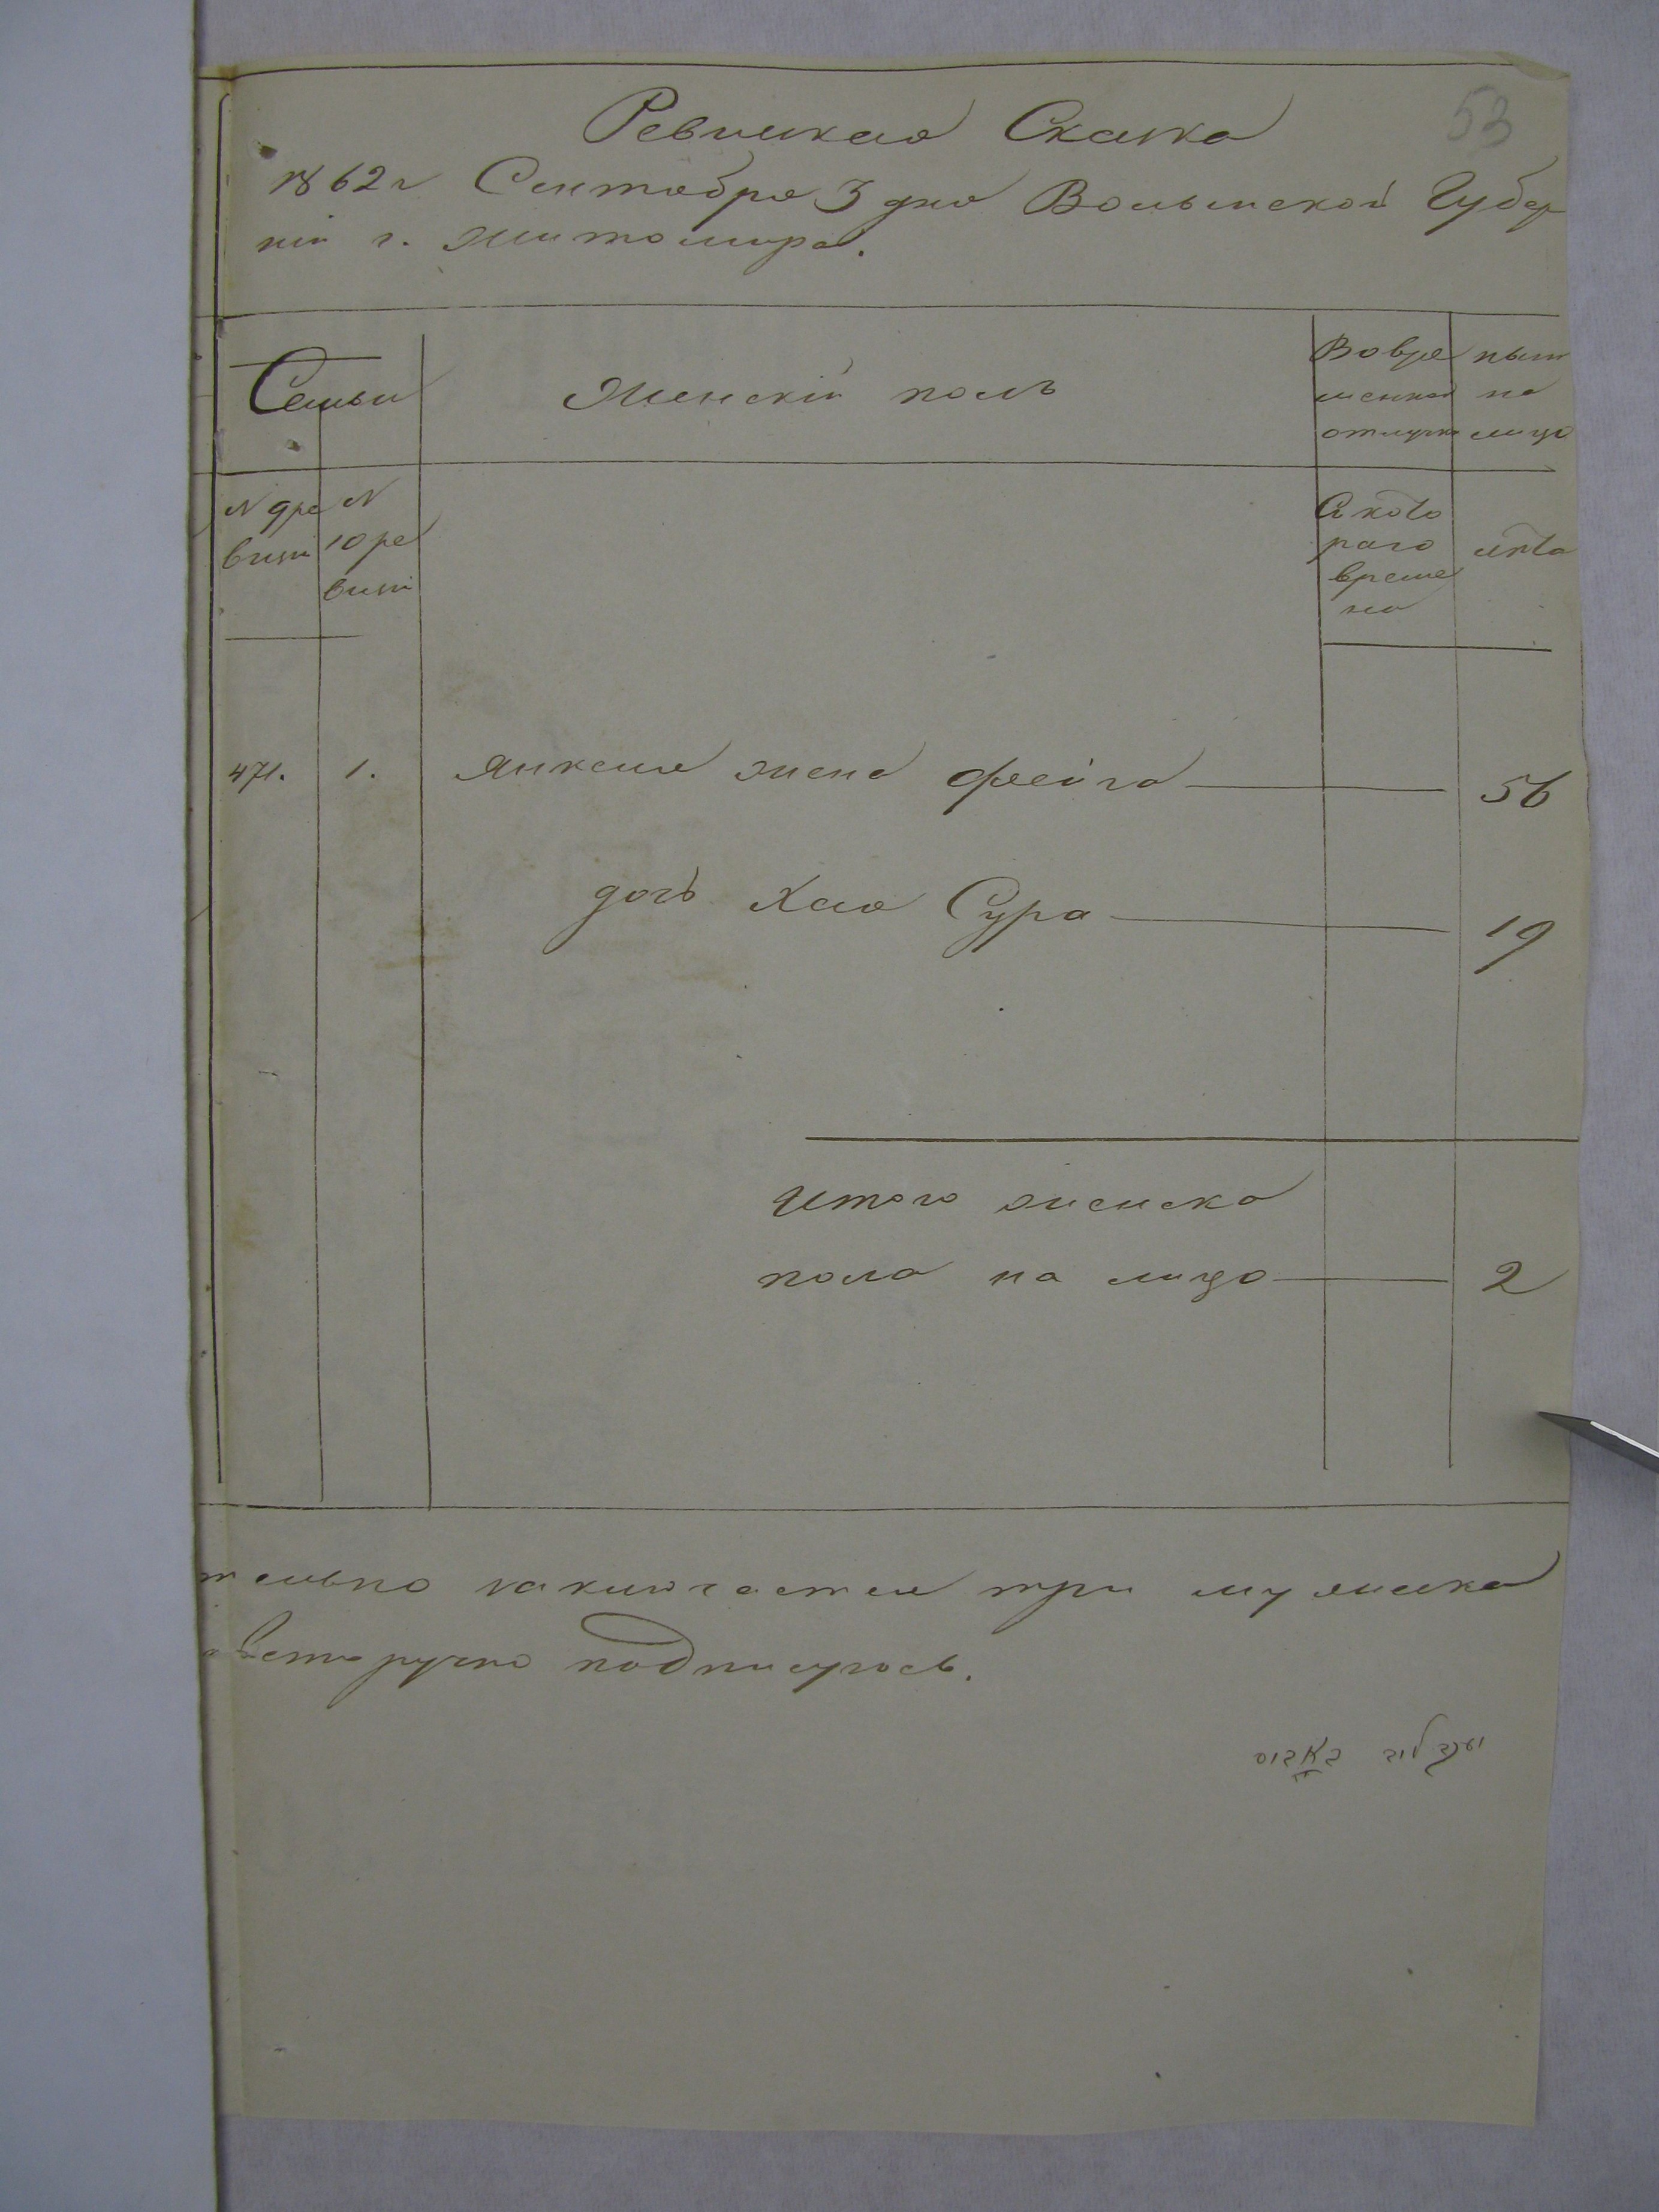 53
Ревизская Сказка
1862 г Сентября 3 дня Волынской Губер
ніи г. Житомира.
Семьи
Женскій полъ
Во вре
менной
отлучке
нын
на
лицо
N 9 ре
визіи
N
10 ре
визіи
Съ кото
раго
време
ни
лѣта
471. 1. Янкеля жена Фейга 56
дочь Хая Сура 19
Итого женска
пола на лицо 2
тельно заключается три мужеска
подписуюсь.